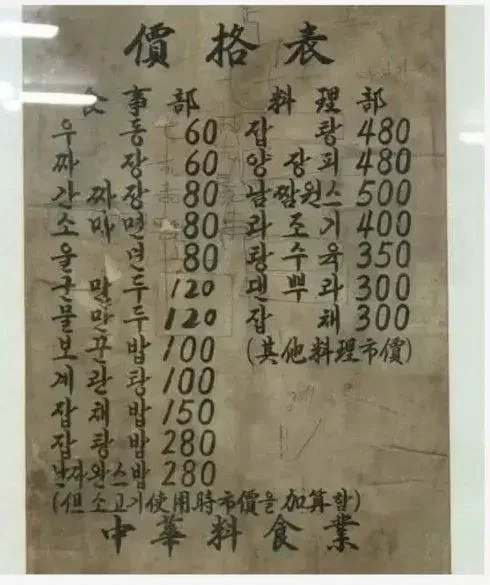 價格表
食事部
우동 60
짜장 60
간짜장 80
소마면 80
울면 80
군만두 120
물만두 120
보꾼밥 100
계란탕 100
잡채밥 150
잡탕밥 280
난자완스밥 280
(但소고기使用時市價을加算함)
料理部
잡탕 480
양장피 480
500
라조기 400
탕수육 350
댄뿌라 300
잡채 300
(其他料理市價)
中華料食業